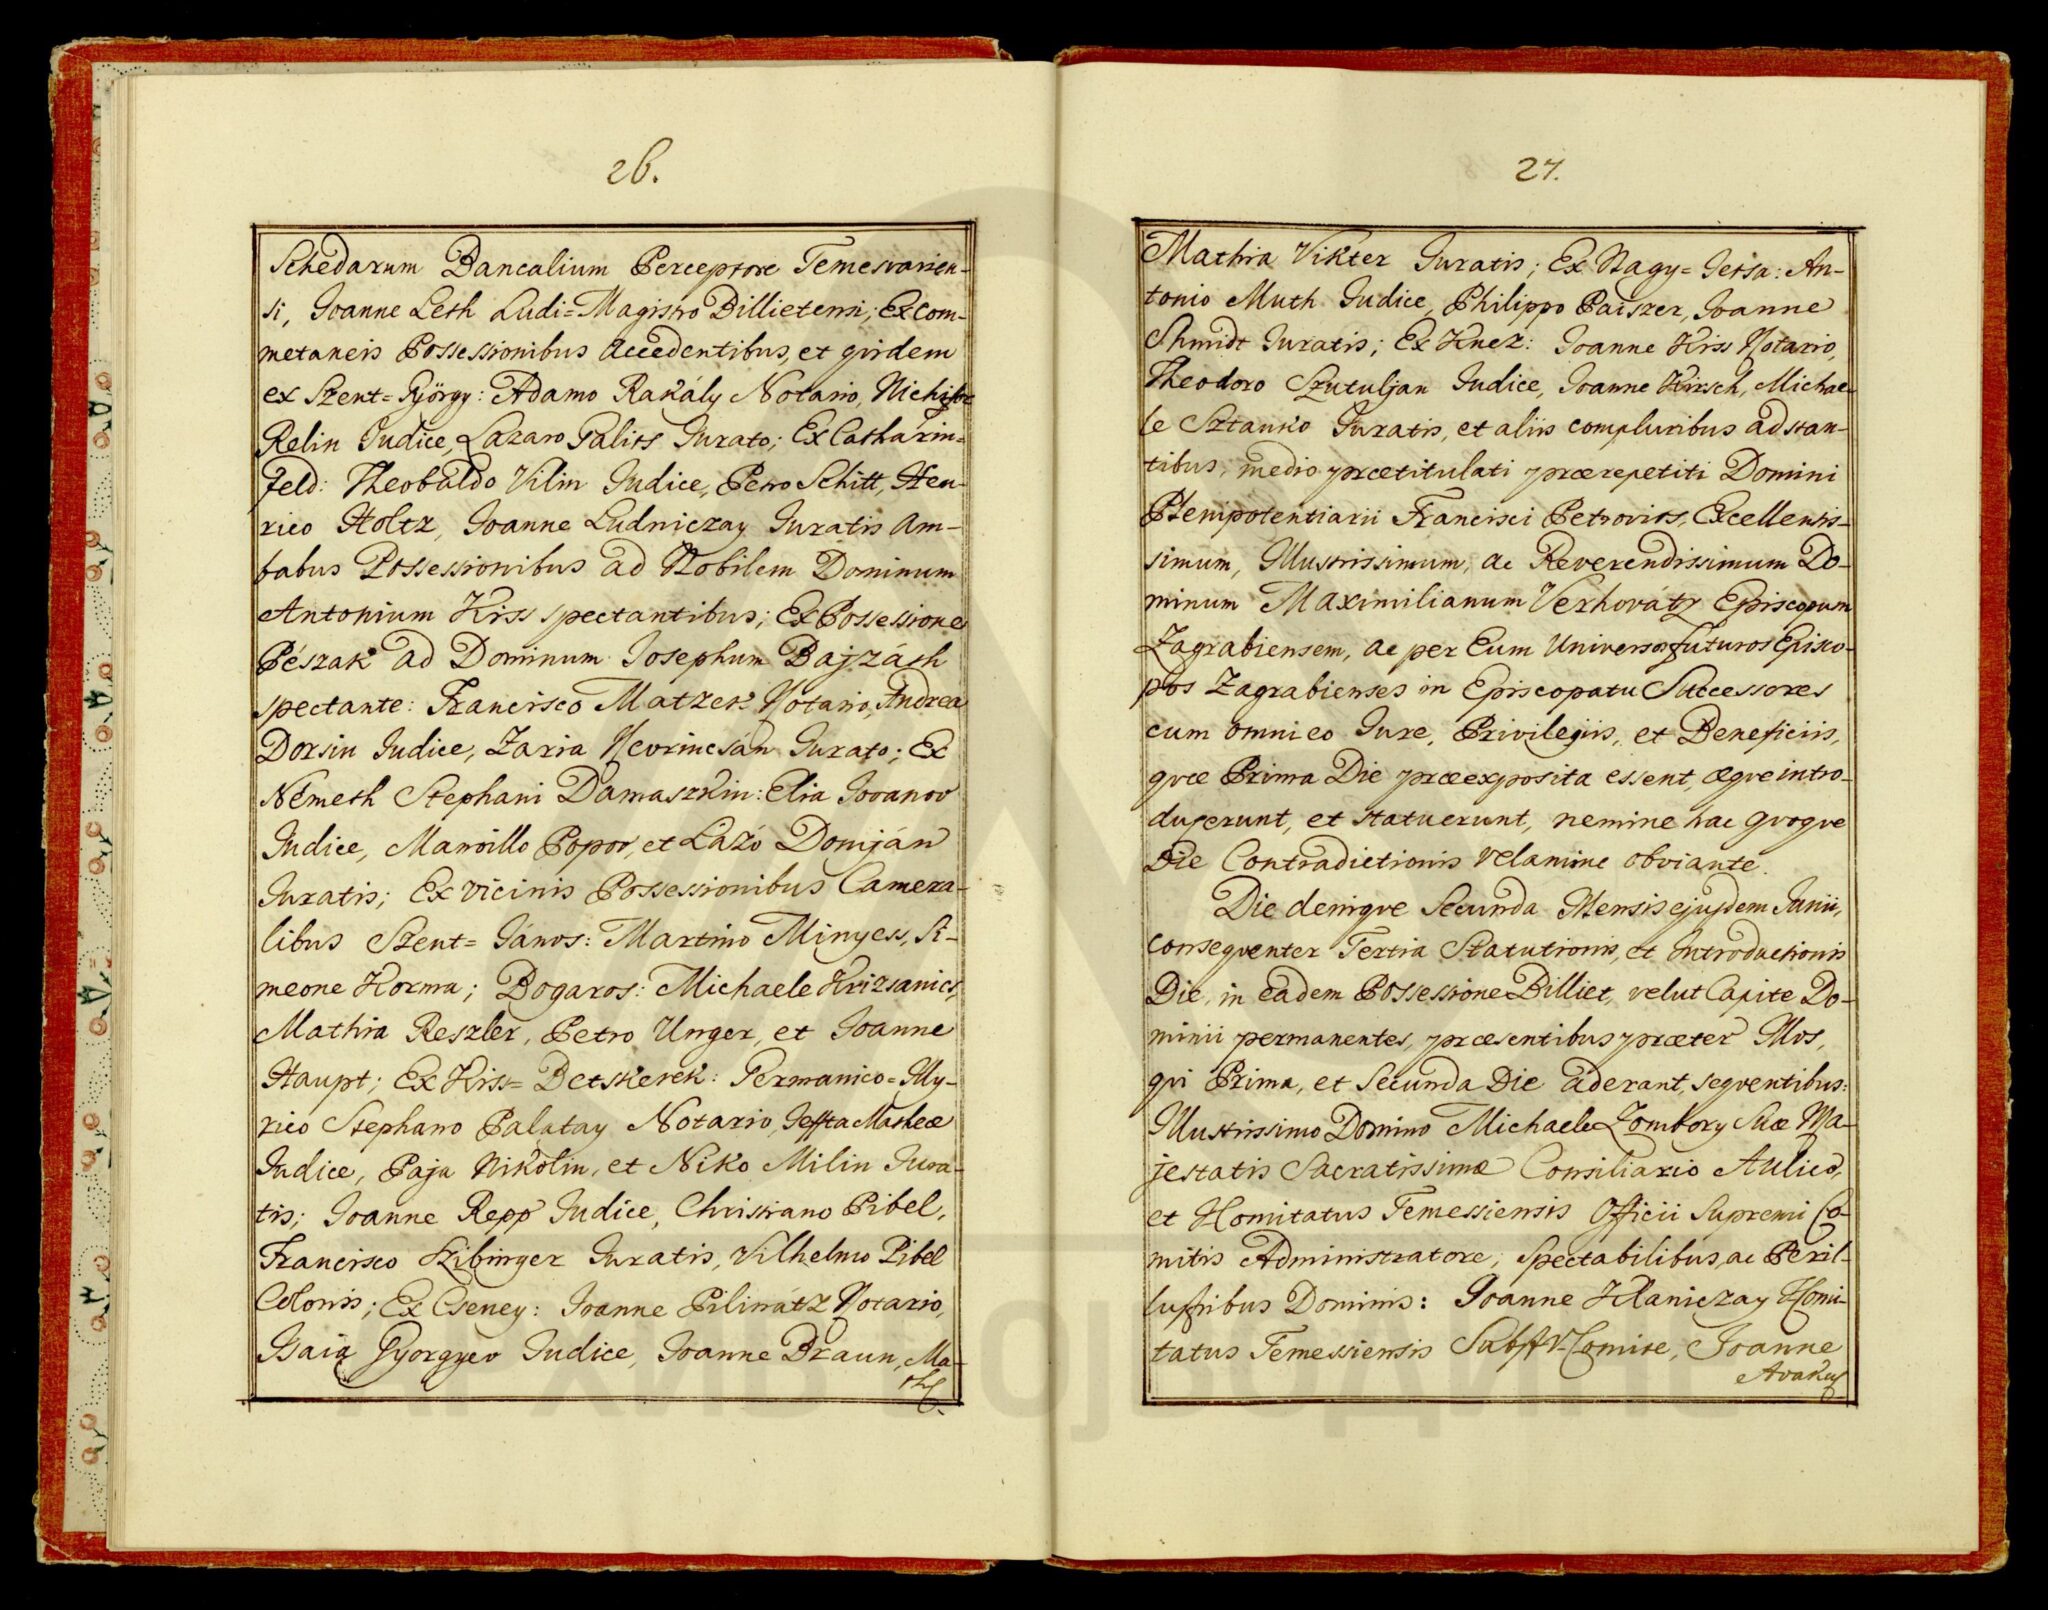 26.
Schedarum Bancalium Perceptore Temesvarien-
si, Joanne Leth Ludi=Magistro Billietensi; Ex Com-
metaneis Possessionibus accedentibus, et qvidem
ex Szent=György: Adamo Rakály Notario, Nichifor
Relin Judice, Lazaro Palits Jurato; Ex Catharin-
feld: Theobaldo Vilm Judice, Petro Schitt, Hen-
rico Holtz, Joanne Ludniczay Juratis am-
babus Possessionibus ad Nobilem Dominum
Antonium Kiss spectantibus; Ex Possessione
Pészak ad Dominum Josephum Bajzáth
spectante: Francisco Matzek Notario, Andrea
Dorsin Judice, Zaria Nevrincsán Jurato; Ex
Németh Stephani Damaszkin: Elia Jovanov
Judice, Manoillo Popov, et Lazó Domján
Juratis; Ex vicinis Possessionibus Camera-
libus Szent=János: Martino Minyess, Si-
meone Korma; Bogaros: Michaele Krizsanics,
Mathia Reszler, Petro Unger, et Joanne
Haupt; Ex Kis=Betskerek: Germanico=Illy-
rico Stephano Palatay Notario, Jeffta Maslea
Judice, Paja Nikolin, et Niko Milin Jura-
tis; Joanne Repp Judice, Christiano Pibel,
Francisco Szibinger Juratis, Vilhelmo Pibel
Colonis; Ex Cseney: Joanne Pilinátz Notario,
Isaia Gyorgyev Judice, Joanne Braun, Ma-
27.
Mathia Vikter Juratis; Ex Nagy=Jetsa: An-
tonio Muth Judice, Philippo Paiszer, Joanne
Shmidt Juratis; Ex Knez: Joanne Kiss Notario,
Theodoro Szutuljan Judice, Joanne Hirsch, Michae-
le Sztanko Juratis, et aliis compluribus adstan-
tibus, medio prætitulati prærepetiti Domini
Plenipotentiarii Francisci Petrovits, Excellentis-
simum, Illustrissimum, ac Reverendissimum Do-
minum Maximilianum Verhovátz Episcopum
Zagrabiensem, ac per Eum Universos futuros Episco-
pos Zagrabienses in Episcopatu Successores
cum omni eo Jure, Privilegiis, et Beneficiis,
qvæ Prima Die præexposita essent, æqve intro-
duxerunt, et statuerunt, nemine hac qvoqve
Die Contradictionis velamine obviante.
Die deniqve Secunda Mensis ejusdem Junii,
conseqventer Tertia Statutionis, et Introductionis
Die, in eadem Possessione Billiet, velut Capite Do-
minii permanentes, præsentibus præter Illos,
qvi Prima, et Secunda Die aderant, seqventibus:
Illustrissimo Domino Michaele Zombory Suæ Ma-
jestatis Sacratissimæ Consiliario Aulico,
et Comitatus Temessiensis Officii Supremi Co-
mitis Administratore; Spectabilibus, ac Peril-
lustribus Dominis: Joanne Klaniczay Comi-
tatus Temessiensis Subst V=Comite, Joanne
Avakul